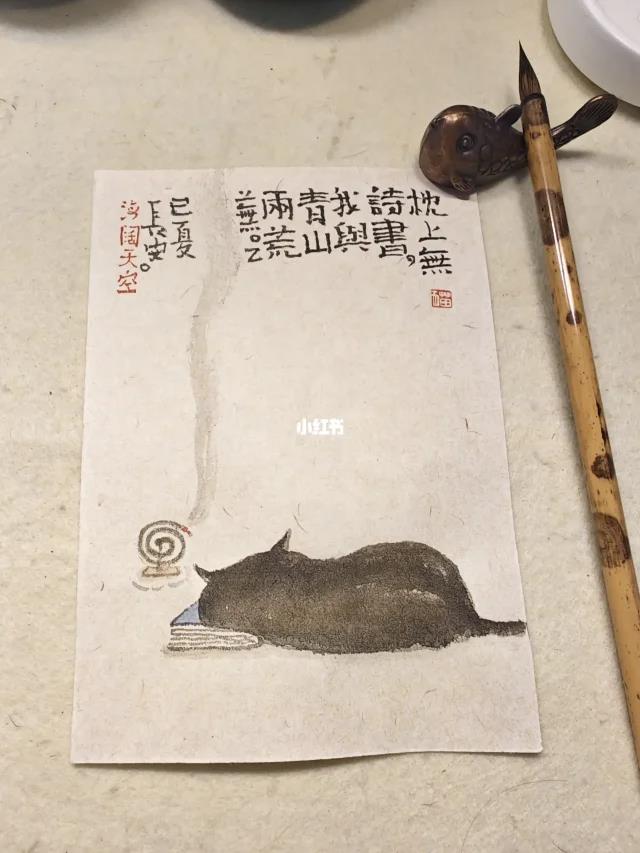 枕上無
詩書，
我與
青山
兩荒
蕪。乙
巳夏
長安。
海阔天空
小红书